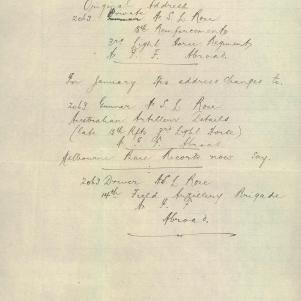 Original Address
2063 Private A S L Rose
13th Reinforcements
3rd Light Horse Regiment
A. I. F. Abroad.
For January this address changes to.
2063 Gunner A S L Rose
Australian Artillery Details
(late 13th Rfts 3rd Light Horse)
A I F Abroad
Melbourne Base Records now say.
2063 Driver A S L Rose
14th Field Artillery Brigade
A. I. F
Abroad.